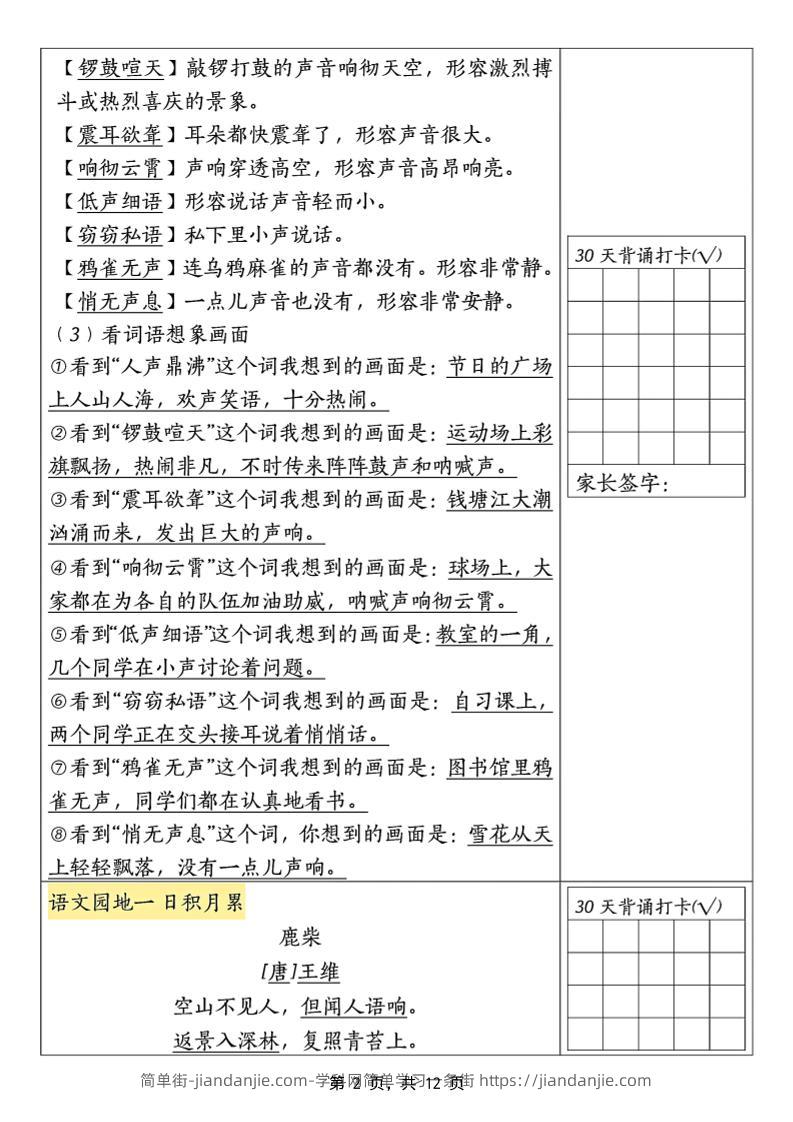 【锣鼓喧天】敲锣打鼓的声音响彻天空，形容激烈搏
斗或热烈喜庆的景象。
【震耳欲聋】耳朵都快震聋了，形容声音很大。
【响彻云霄】声响穿透高空，形容声音高昂响亮。
【低声细语】形容说话声音轻而小。
【窃窃私语】私下里小声说话。
【鸦雀无声】连乌鸦麻雀的声音都没有。形容非常静。
【悄无声息】一点儿声音也没有，形容非常安静。
（3）看词语想象画面
①看到“人声鼎沸”这个词我想到的画面是：节日的广场
上人山人海，欢声笑语，十分热闹。
②看到“锣鼓喧天”这个词我想到的画面是：运动场上彩
旗飘扬，热闹非凡，不时传来阵阵鼓声和呐喊声。
③看到“震耳欲聋”这个词我想到的画面是：钱塘江大潮
汹涌而来，发出巨大的声响。
④看到“响彻云霄”这个词我想到的画面是：球场上，大
家都在为各自的队伍加油助威，呐喊声响彻云霄。
⑤看到“低声细语”这个词我想到的画面是：教室的一角，
几个同学在小声讨论着问题。
⑥看到“窃窃私语”这个词我想到的画面是：自习课上，
两个同学正在交头接耳说着悄悄话。
⑦看到“鸦雀无声”这个词我想到的画面是：图书馆里鸦
雀无声，同学们都在认真地看书。
⑧看到“悄无声息”这个词，你想到的画面是：雪花从天
上轻轻飘落，没有一点儿声响。
30 天背诵打卡(√)
家长签字：
语文园地一 日积月累
鹿柴
[唐]王维
空山不见人，但闻人语响。
返景入深林，复照青苔上。
30 天背诵打卡(√)
简单街-jiandanjie.com-学科网简单学习一条街 https://jiandanjie.com
第 2 页，共 12 页